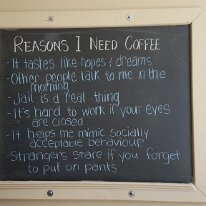 REASONS I NEED COFFEE
- It tastes like hopes & dreams
- Other people talk to me in the
morning
- Jail is a real thing
- It's hard to work if your eyes
are closed
- It helps me mimic socially
acceptable behaviour
- Strangers stare if you forget
to put on pants